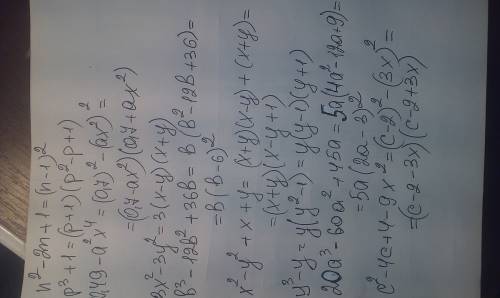 n²-2n+1=(n-1)²
p³+1=(p+1)(p²-p+1)
0,49-a²x⁴=(0,7)²-(ax²)²=
=(0,7-ax²)(0,7+ax²)
3x²-3y²=3(x-y)(x+y)
b³-12b²+36b=b(b²-12b+36)=
=b(b-6)²
x²-y²+x+y=(x+y)(x-y)+(x+y)=
=(x+y)(x-y+1)
y³-y=y(y²-1)=y(y-1)(y+1)
20a³-60a²+45a=5a(4a²-12a+9)=
=5a(2a-3)²
c²-4c+4-9x²=(c-2)²-(3x)²=
=(c-2-3x)(c-2+3x)